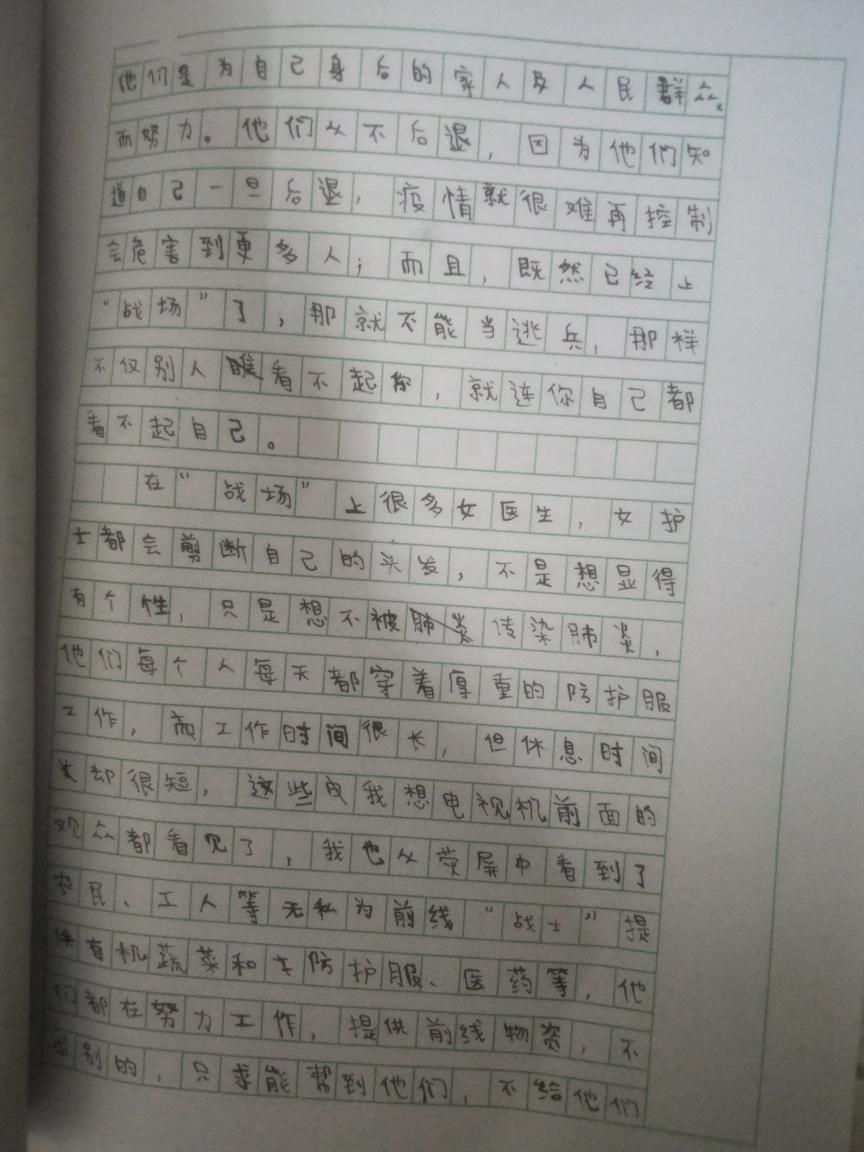 他们是为自己身后的家人及人民群众
而努力。他们从不后退，因为他们知
道自己一旦后退，疫情就很难再控制
会危害到更多人；而且，既然已经上
“战场”了，那就不能当逃兵，那样
不仅别人看不起你，就连你自己都
看不起自己。
在“战场”上很多女医生，女护
士都会剪断自己的头发，不是想显得
有个性，只是想不被传染肺炎，
他们每个人每天都穿着厚重的防护服
工作，而工作时间很长，但休息时间
却很短，这些我想电视机前面的
观众都看见了，我也从荧屏中看到了
农民、工人等无私为前线“战士”提
供有机蔬菜和防护服、医药等，他
们都在努力工作，提供前线物资，不
求别的，只求能帮到他们，不给他们